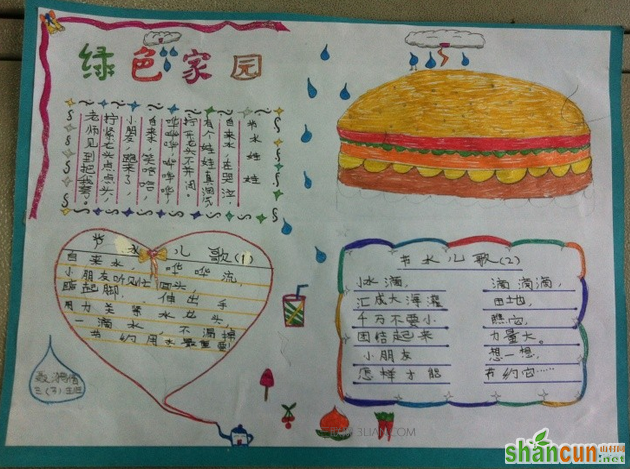 绿色家园
节水娃娃
自来水，在哭泣，
有个娃娃真淘气，
拧开龙头不关闭，
自来水，笑哈哈，
小朋友，跑来了，
拧紧龙头点点头，
老师见到把我夸。
节水儿歌(1)
自来水，哗哗流，
小朋友听见忙回头，
踮起脚，伸出手
用力关紧水龙头
一滴水，不漏掉
节约用水最重要
节水儿歌(2)
小水滴，滴滴滴，
汇成大海灌田地，
千万不要小瞧它，
团结起来力量大。
小朋友想一想，
怎样才能节约它……
三(3)班
3LIAN.COM
shancun
山村网